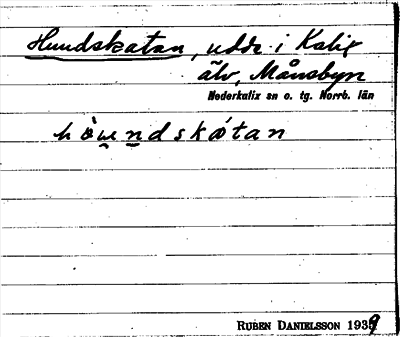 Hundskatan, udde i Kalix
älv, Månsbyn
Nederkalix sn o. tg. Norrb. län
hòu̯n̠dskótan
RUBEN DANIELSSON 1939